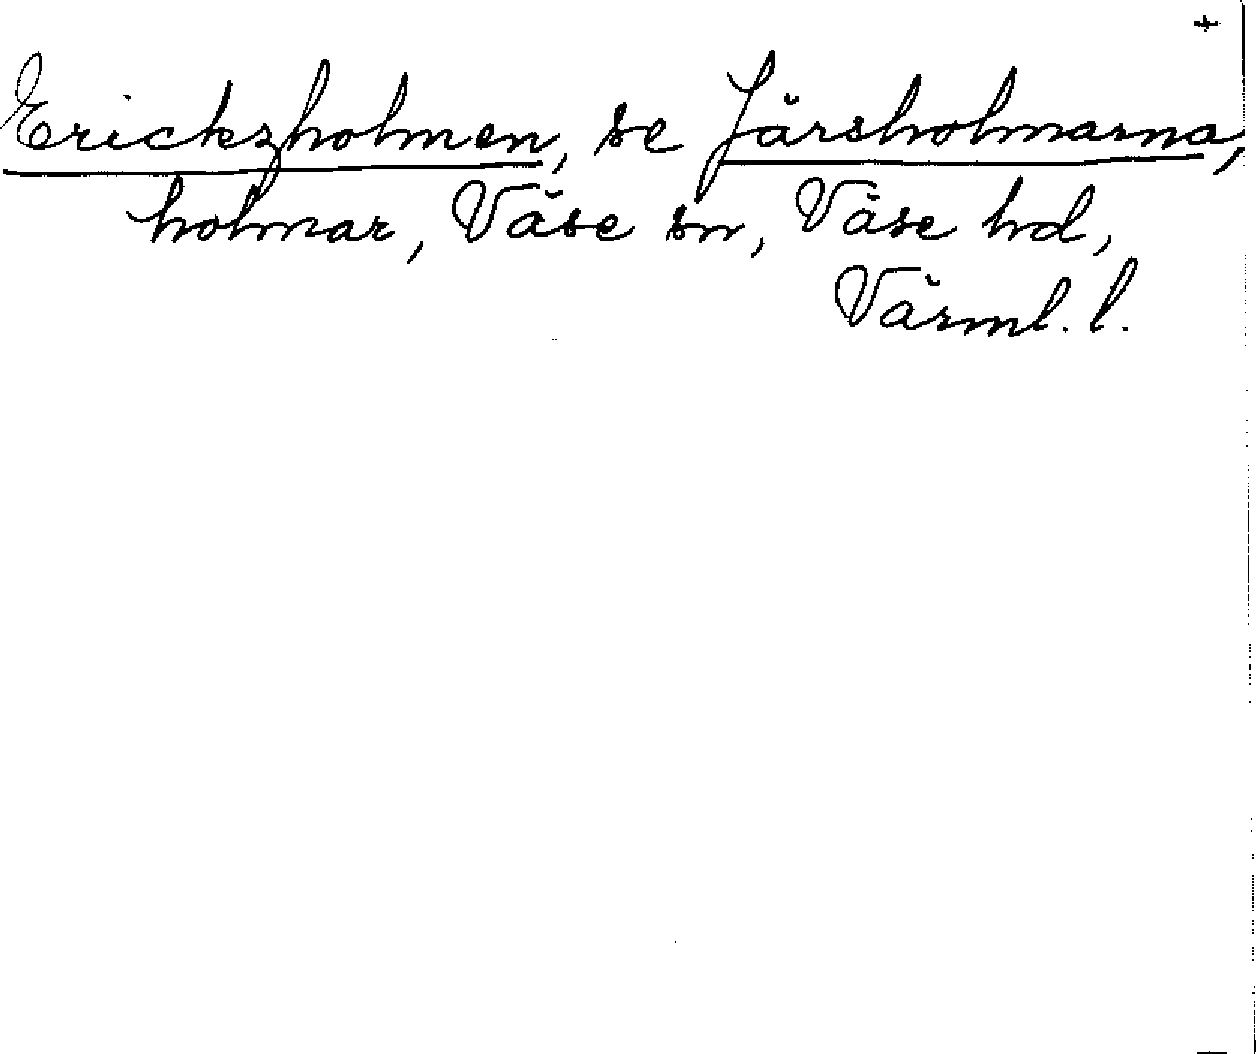 +
Erickzholmen, se Järsholmarna,
holmar, Väse sn, Väse hd,
Värml. l.